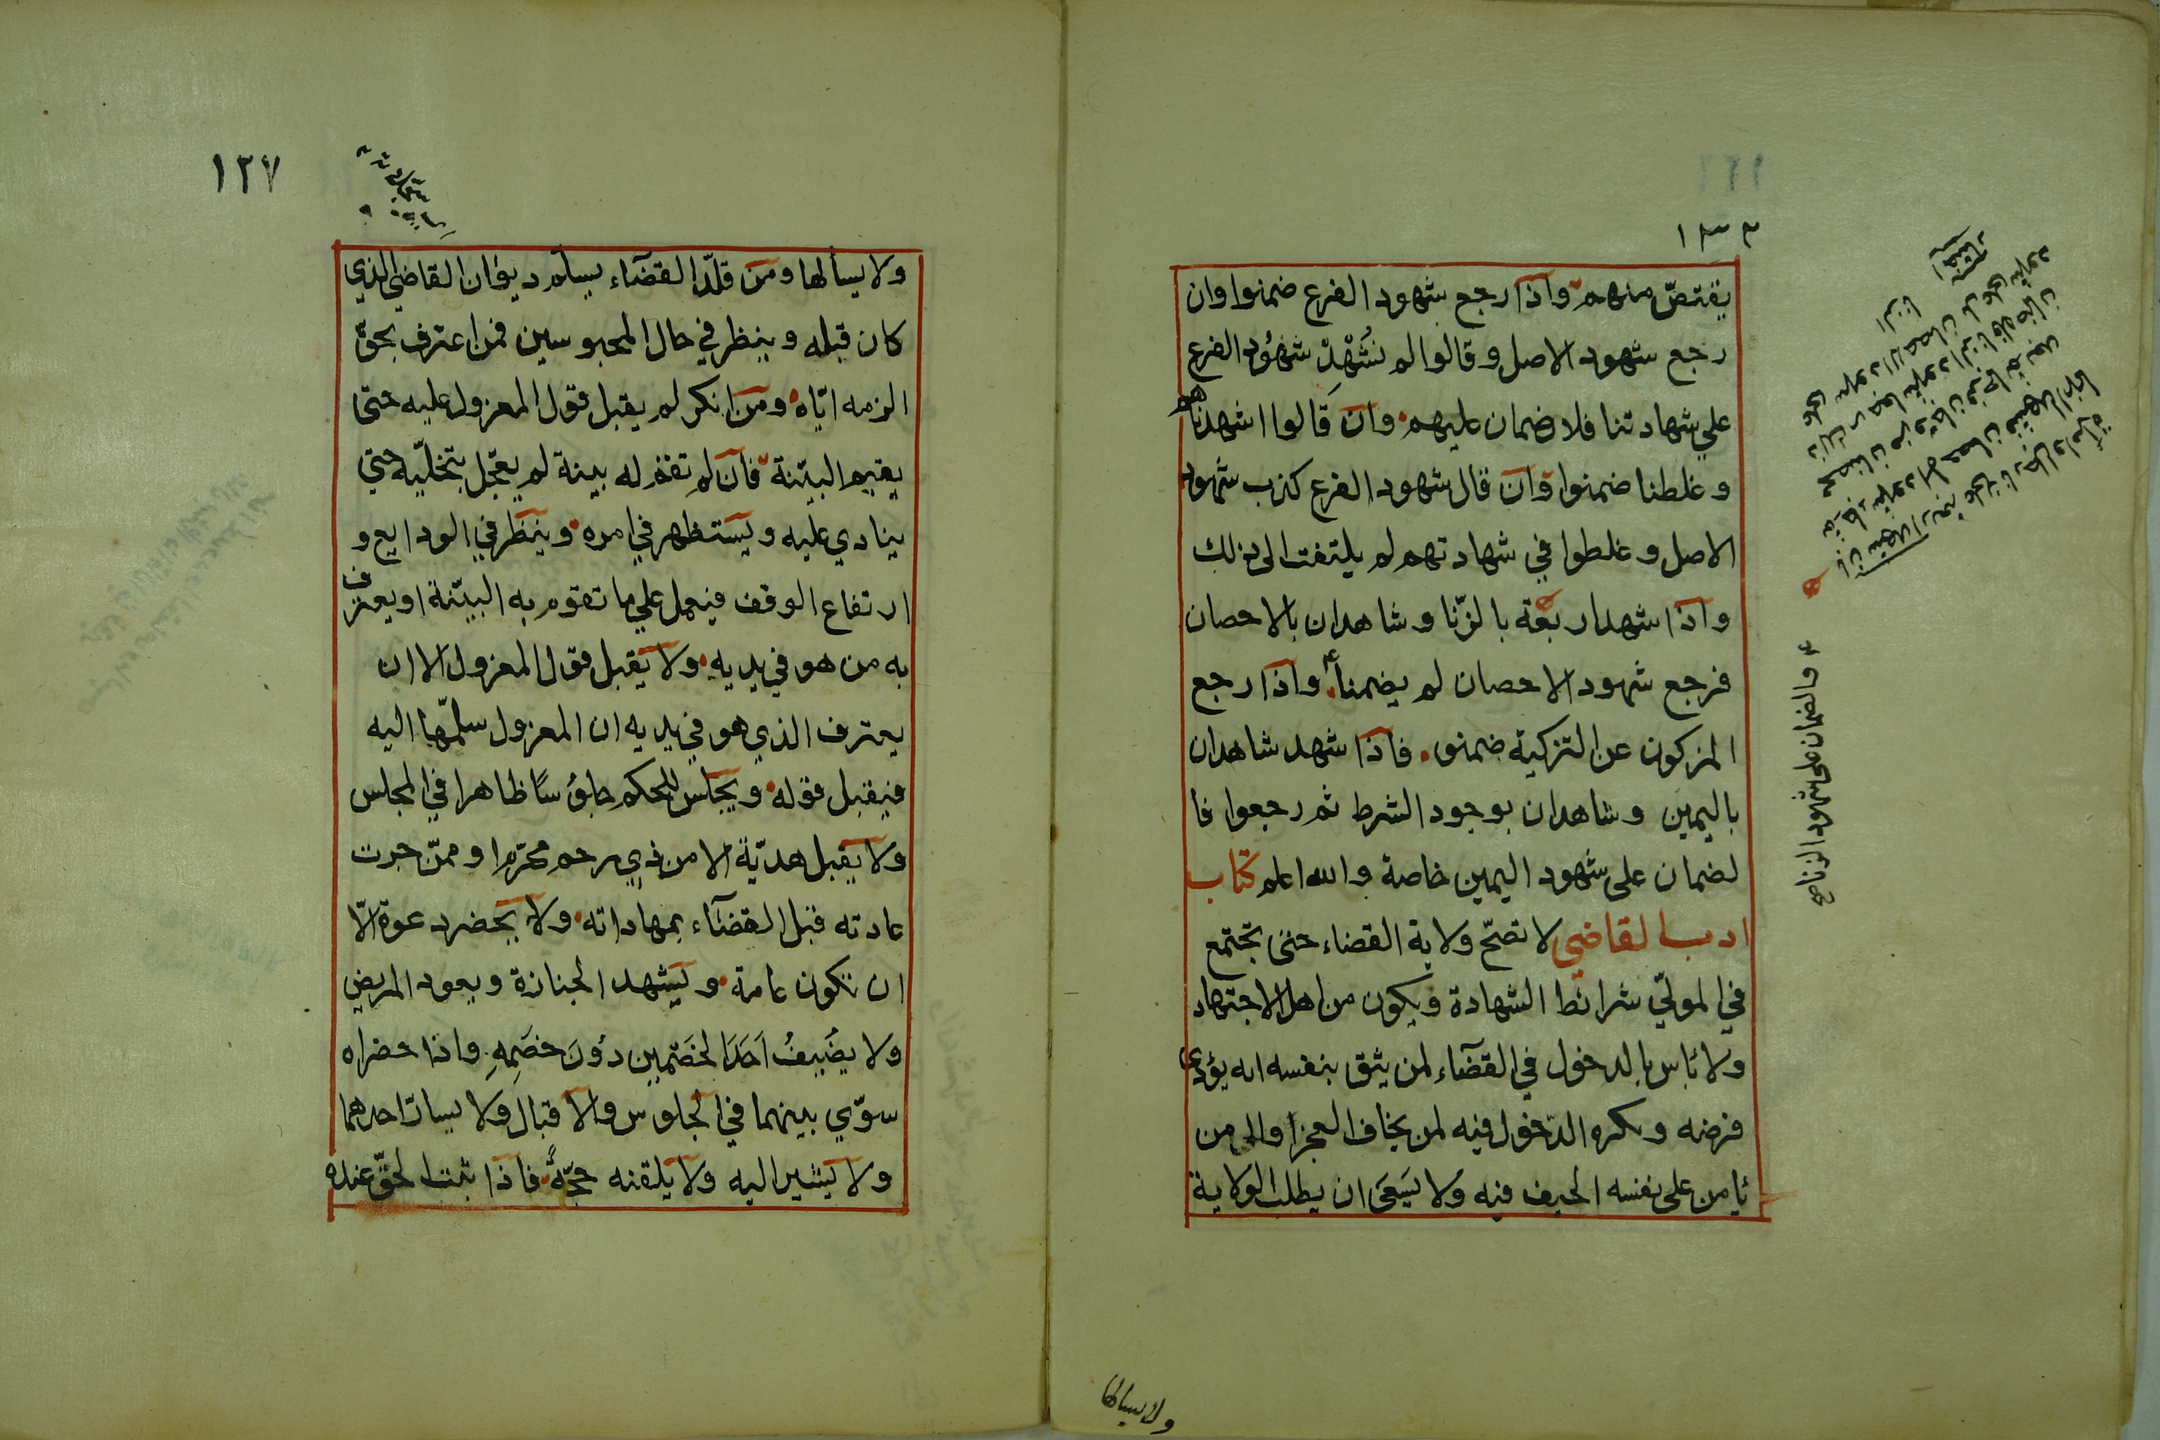 ١٣٢
يقتصّ منهم واذا رجع شهود الفرع ضمنوا وان
رجع شهود الاصل وقالوا لم نُشْهِدْ شهُود الفرع
علي شهادتنا فلا ضمان عليهم وان قالوا اشهدناهم
وغلطنا ضمنوا وان قال شهود الفرع كذب شهود
الاصل وغلطوا في شهادتهم لم يلتفت الى ذلك
واذا شهد اربعة بالزّنا وشاهدان بالاحصان
فرجع شهود الاحصان لم يضمنا واذا رجع
المزكون عن التزكية ضمنو فاذا شهد شاهدان
باليمين وشاهدان بوجود الشرط ثم رجعوا فا
لضمان على شهود اليمين خاصة والله اعلم كتاب
ادب القاضي لا تصحّ ولاية القضاء حتى تجتمع
في المولّي شرائط الشهادة ويكون من اهل الاجتهاد
ولا باس بالدخول في القضآء لمن يثق بنفسه انه يؤدي
فرضه ويكره الدّخول فيه لمن يخاف العجز
يامن على نفسه الحيف فيه ولا ان يطلب الولاية
والضمان على شهود الزنا صح
ولا يسالها
١٢٧
ولا يسألها ومن قلّد القضآء يسلّم ديوان القاضي الذي
كان قبله وينظر في حال المحبوسين فمن اعترف بحقّ
الزمه ايّاه ومن انكر لم يقبل قول المعزول عليه حتى
يقيم البيّنة فان لم تقم له بينة لم يعجّل بتخليّه حتي
ينادي عليه ويستظهر في امره وينظر في الودايع و
ارتفاع الوقف فيعمل علي ما تقوم به البيّنة او يعترف
به من هو في يديه ولا يقبل قول المعزول الا ان
يعترف الذي هو في يديه ان المعزول سلّمها اليه
فيقبل قوله ويجلس للحكم جلوُسًا ظاهرا في المجلس
ولا يقبل هديّة الا من ذي رحم محرم او ممّن جرت
عادته قبل القضآء بمهاداته ولا يحضر دعوة الّا
ان تكون عامة ويشهد الجنازة ويعود المريض
ولا يضُيفُ اَحَدَ الخَصْمين دوُنَ خصَمِهِ واذا حضراه
سوّي بينهما في الجلوس والاقبال ولا يسارّ احدهما
ولا يشير اليه ولا يلقنه حجّةً فاذا ثبت الحقّ عنده